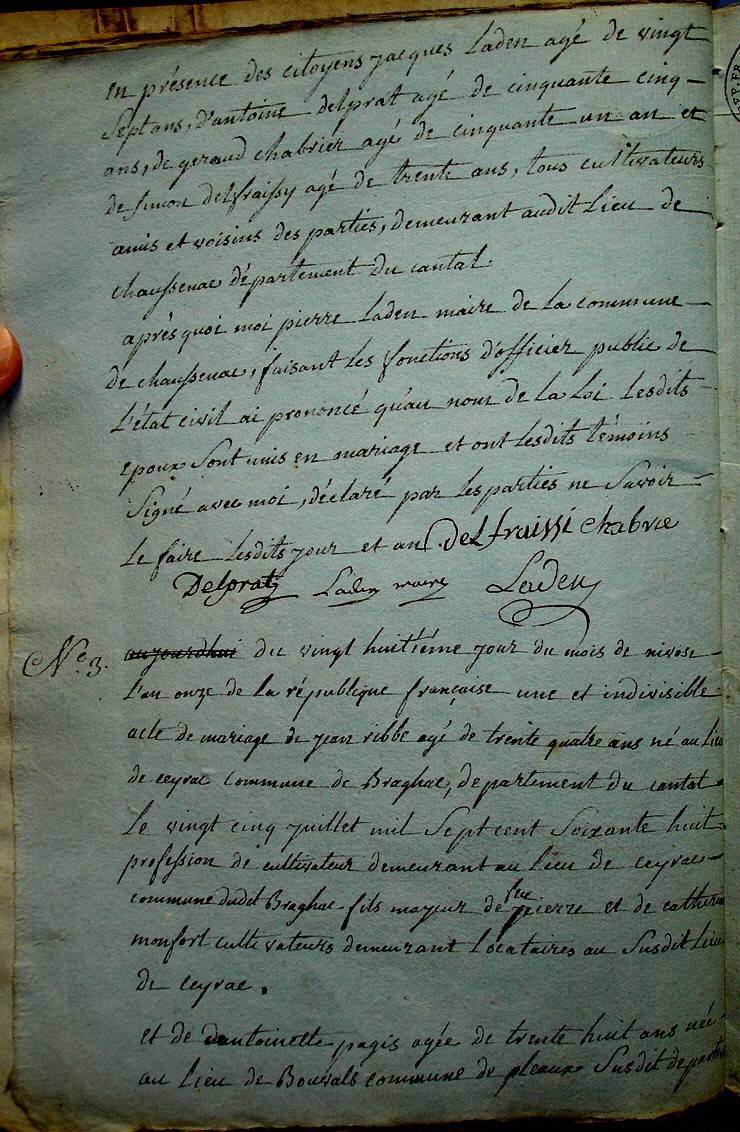 en présence des citoyens jacques Laden agé de vingt
Sept ans, d'antoine delprat agé de cinquante cinq
ans, de geraud chabrier agé de cinquante un an et
de simon delfraissy agé de trente ans, tous cultivateurs
amis et voisins des parties, demeurant audit Lieu de
chaussenac département du cantal.
après quoi moi pierre Laden maire de la commune
de chaussenac, faisant les fonctions d'officier public de
L'état civil ai prononcé qu'au nom de la Loi lesdits
epoux sont unis en mariage et ont lesdits témoins
Signé avec moi, déclaré par les parties ne Savoir
le faire lesdits jour et an. delfraissi chabrie
Delprat Laden maire Laden
N.º 3. aujourdhui du vingt huitiéme jour du mois de nivose
l'an onze de la république française une et indivisible
acte de mariage de jean ribbe agé de trente quatre ans né au lieu
de ceyrac commune de Braghac, département du cantal
le vingt cinq juillet mil Sept cent Soixante huit
profession de cultivateur demeurant au lieu de ceyrac
commune dudit Braghac fils majeur de feu pierre et de catherine
monfort cultivateurs demeurant locataires au Susdit lieu
de ceyrac.
et de dantoinette pagis agée de trente huit ans née
au lieu de Bouvals commune de pleaux Susdit départ